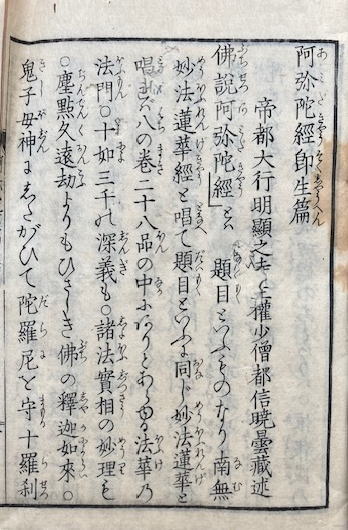 阿弥陀經即生篇
帝都大行明顯之 權少僧都信曉曇藏述
佛説阿弥陀經とハ 題目といふものなり南無
妙法蓮華經と唱て題目といふに同じ妙法蓮華と
唱れバ八の巻二十八品の中にありとあらゆる法華乃
法門○十如三千の深義も○諸法實相の妙理も
○塵點久遠劫よりもひさしき佛の釋迦如來○
鬼子母神にしたがひて陀羅尼を守十羅刹